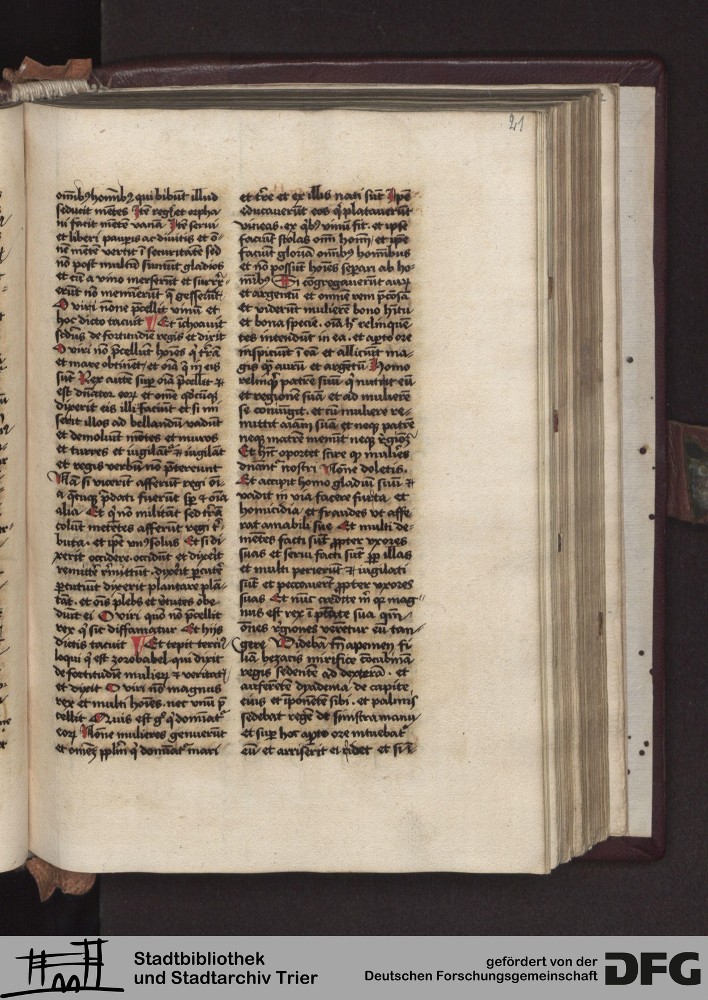 21
omībꝫ homībꝫ qui bibūt illud
seducit mētes Itē regē et orpha
ni facit mētē vanā Itē serui
et liberi paupis ac diuitis et o-
nē mētē vertit ī securitatē sed
nō post multū sumūt gladios
et cū a vino merserūt et surrx-
erūt nō meminerūt q̄ gesserūt
O viri nōne p̄cellit vinū et
hoc dicto tacuit Et īchoauit
sedn̄s de fortitudine regis et dixit
O viri nō p̄cellūt hoīes q̄ trā
et mare obtinēt et oīa q̄ in eis
sūt Rex autē sup oīa p̄cellit ⁊
est dn̄ator eoꝝ et omē qdcūqꝫ
dixerit eis illi faciūt et si mi
serit illos ad bellandū vadūt
et demoliūt mōtes et muros
et turres et iugilātʳ ⁊ iugilāt
et regis verbū nō p̄tereunt
Nā si vicerit afferūt regi oī
a q̄cūqꝫ p̄dati fuerūt sꝑ ⁊ oīa
alia Et q̄ nō militāt sed trā
colūt metētes afferūt regi tⁱ
buta et ip̄e vnꝰ solus Et si di
xerit occidere occidūt et dixerit
remittē r̄mittūt dixerit ꝑcutē
ꝑcutiūt dixerit plantare plā-
tāt et oīs plebs et v̄tutes obe
diūt ei O viri quō nō p̄cellit
rex q̄ sic diffamatur Et hijs
dictis tacuit Et cepit terciꝰ
loqui q̄ est zorobabel qui dixit
de fortitudine mulierꝝ ⁊ veritatꝭ
et dixit O viri nō magnus
rex et multi hoīes nec vinū p̄
cellit Quis est gͦ q̄ domīatʳ
eoꝝ Nōne mulieres genuerūt
et omēꝫ pplm̄ q̄ domīatʳ mari
et tre et ex illis nati sūt Ip̄e
educauerūt eos q̄ plātauerūt
vineas ex qbꝫ vinū fit et ipse
faciūt stolas omī homī et ip̄e
faciūt gloriā omībꝫ homībus
et nō possūt hoīes separi ab ho-
mībꝫ Si cōgregauerūt aurꝝ
et argentū et omnē rem p̄cosā
et viderūt mulierē bono hītu
et bona specie oīa h̄ relinquē
tes intendūt in eā et aꝑto ore
inspiciūt ī eā et alliciūt ma-
gis qꝫ aurū et argētū Homo
relinq̄t patrē suū q̄ nutriit eū
et regionē suā et ad mulierē
se coniugit et cū muliere re-
mittit aīam suā et neqꝫ patrē
neqꝫ matrē meīnit neqꝫ r̄gionē
Et hīc oportet scire q mulies
dnāntʳ nostri Nōne doletis
Et accipit homo gladiū suū ⁊
vadit in via facere furta et
homicidia et fraudes ut affe
rat amabili sue Et multi de-
mētes facti sūt ꝓpter vxores
suas et serui facti sūt ꝓp̄ illas
et multi perierūt ⁊ iugilati
sūt et peccauerūt ꝓpter vxores
suas Et nūc credite m̄ q mag-
nus est rex ī ptāte sua qm̄
oīnes r̄giones verētur eū tan-
gere Videbā tn̄ apemen fi
liā bezacis mirifice cōcubinā
regis sedentē ad dexterā et
auferētē dyadema de capite
eius et īponētē sibi et palmis
cedebat regē de sinistra manu
et suꝑ hoc aꝑto ore intuebatʳ
eū et arriserit ei ridet et si ī
Stadtbibliothek
und Stadtarchiv Trier
gefördert von der
Deutschen Forschungsgemeinschaft
DFG